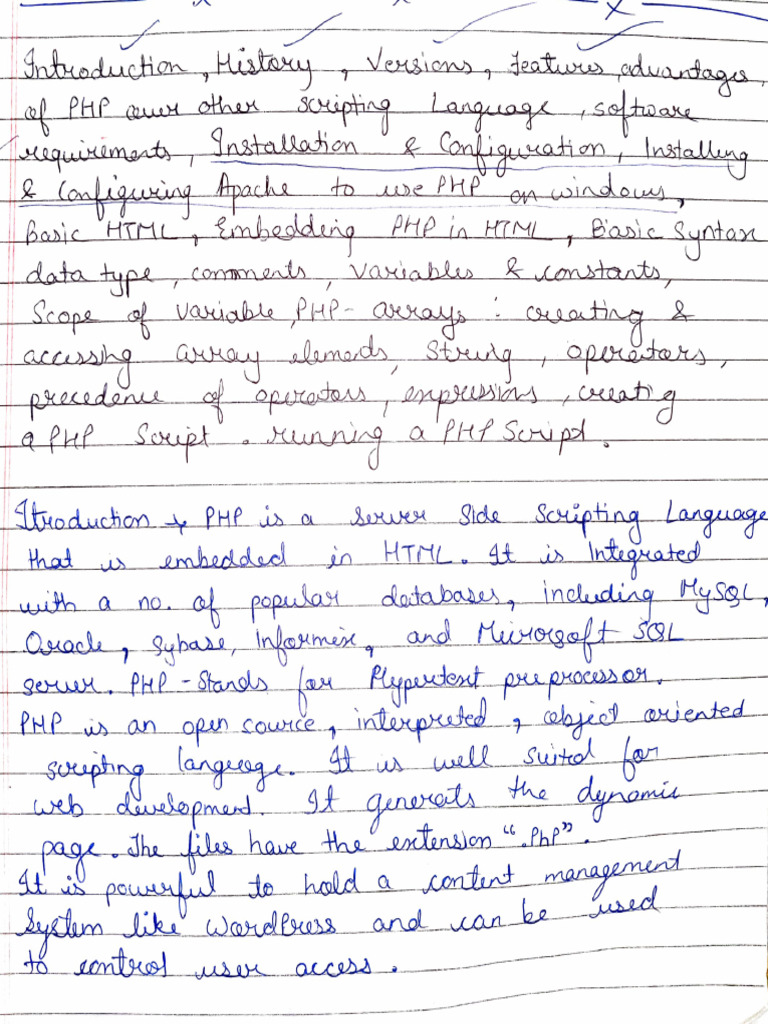 Introduction, History, Versions, features, advantages,
of PHP over other scripting Language, software
requirements, Installation & Configuration, Installing
& Configuring Apache to use PHP on windows,
Basic HTML, Embedding PHP in HTML, Basic Syntax
data type, comments, variables & constants,
Scope of variable, PHP- arrays : creating &
accessing array elements, String, operators,
precedence of operators, expressions, creating
a PHP Script. running a PHP Script.
Itroduction → PHP is a server Side Scripting Language
that is embedded in HTML. It is Integrated
with a no. of popular databases, including MySQL,
Oracle, Sybase, Informix, and Microsoft SQL
server. PHP - Stands for Hypertext preprocessor.
PHP is an open source, interpreted, object oriented
scripting language. It is well suited for
web development. It generats the dynamic
page. The files have the extension ".PhP".
It is powerful to hold a content management
System like WordPress and can be used
to control user access.